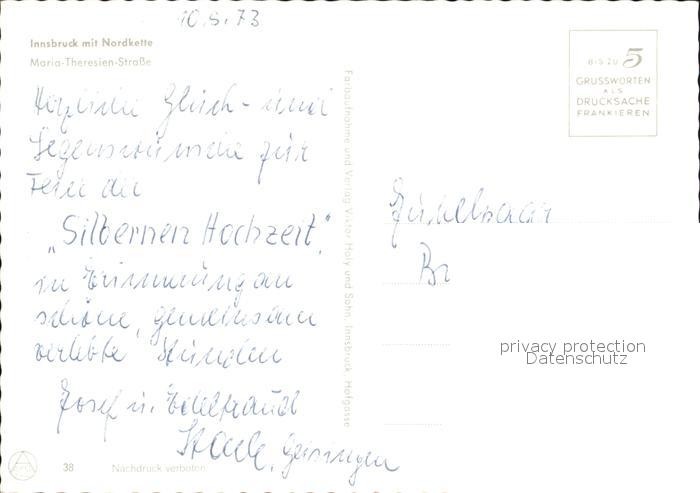 10.5.73
Innsbruck mit Nordkette
Maria-Theresien-Straße
Herzliche Glück- und
Segenswünsche zur
Feier der
„Silbernen Hochzeit"
in Erinnerung an
schöne, gemeinsam
verlebte Stunden
Josef u. Edeltraud
Geisingen
38 Nachdruck verboten
Farbaufnahme und Verlag Viktor Holy und Sohn, Innsbruck, Hofgasse
BIS ZU 5
GRUSSWORTEN
ALS
DRUCKSACHE
FRANKIEREN
Jubelpaar
privacy protection
Datenschutz